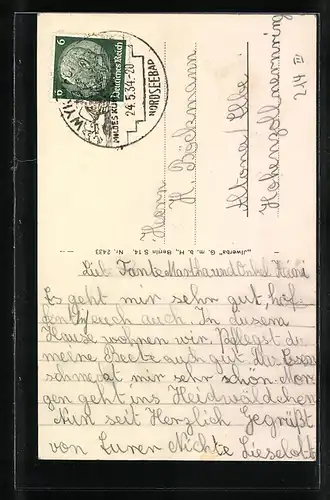 6
Deutsches Reich
WYK
MILDES
24.5.34.-20
NORDSEEBAD
Herrn
H. Böckmann
Altona/Elbe.
Hohenzollernring
214 III
„Jlwerba" G. m. b. H., Berlin S 14, Nr. 2423
Lieb. Tante Martha und Onkel Heini
Es geht mir sehr gut, hof.
fentl. Euch auch. In diesem
Hause wohnen wir. Pflegst du
meine Beete auch gut. Das Essen
schmeckt mir sehr schön. Mor-
gen geht ins Heidwäldchen
Nun seit Herzlich Gegrüßt
von Eurer Nichte Lieselott